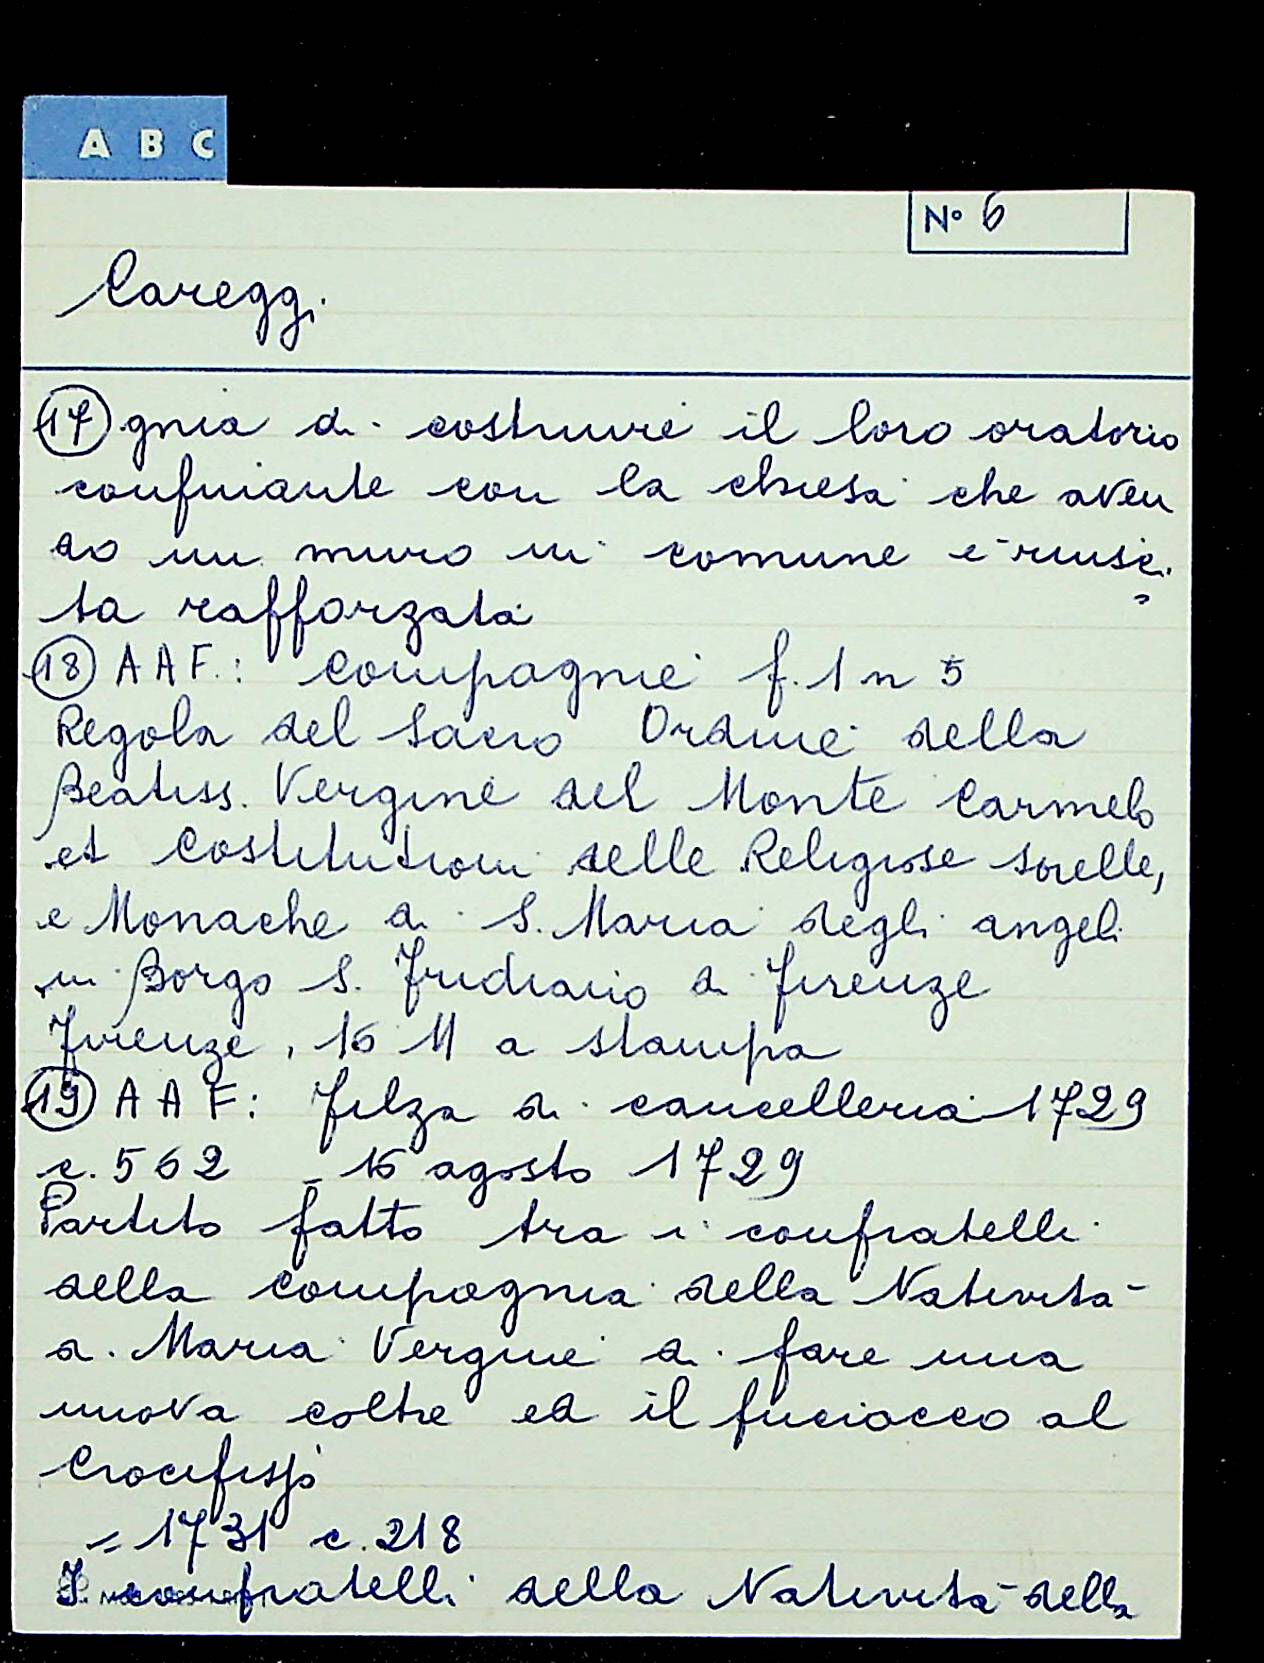 A B C
N° 6
Careggi
17 gnia di costruire il loro oratorio
confinante con la chiesa che aven
do un muro in comune è riusci
ta rafforzata
18 A A F.: Compagnie f. 1 n 5
Regola del Sacro Ordine della
Beatiss. Vergine del Monte Carmelo
et Costitutioni delle Religiose sorelle,
e Monache di S. Maria degli angeli
in Borgo S. Fridiano di Firenze
Firenze, 16 11 a stampa
19 A A F: Filza di cancelleria 1729
c. 562 = 16 agosto 1729
Partito fatto tra i confratelli
della Compagnia della Natività
di Maria Vergine di fare una
nuova coltre ed il al
Crocifisso
= 1731 c. 218
I confratelli della Natività della